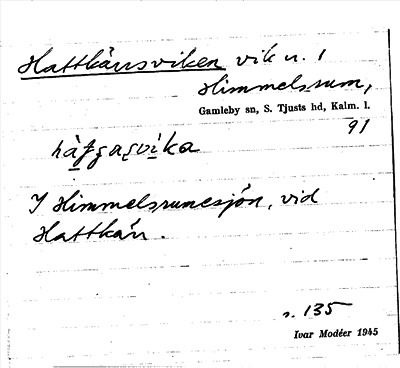 Hattkärrsviken vik n. 1
Himmelsrum,
Gamleby sn, S. Tjusts hd, Kalm. l.
91
I Himmelsrumssjön, vid
Hattkärr.
s. 135
Ivar Modéer 1945